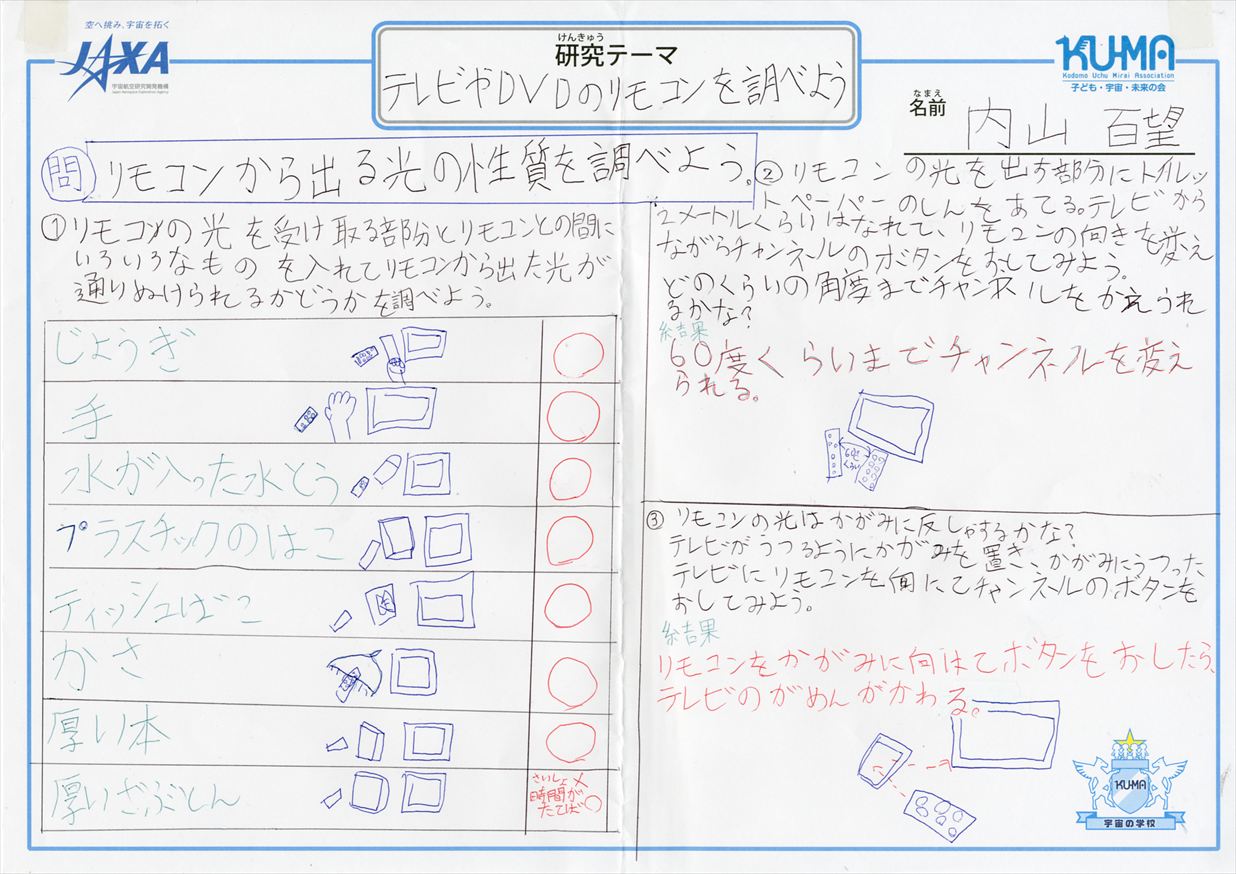 空へ挑み、宇宙を拓く
JAXA
宇宙航空研究開発機構
Japan Aerospace Exploration Agency
けんきゅう
研究テーマ
テレビやDVDのリモコンを調べよう
KU-MA
Kodomo Uchu Mirai Association
子ども・宇宙・未来の会
なまえ
名前
内山 百望
問 リモコンから出る光の性質を調べよう。
①リモコンの光を受け取る部分とリモコンとの間に
いろいろなものを入れてリモコンから出た光が
通りぬけられるかどうかを調べよう。
じょうぎ ○
手 ○
水が入った水とう ○
プラスチックのはこ ○
ティッシュばこ ○
かさ ○
厚い本 ○
厚いざぶとん
さいしょ×
時間が
たてば○
②リモコンの光を出す部分にトイレッ
トペーパーのしんをあてる。テレビから
2メートルくらいはなれて、リモコンの向きを変え
ながらチャンネルのボタンをおしてみよう。
どのくらいの角度までチャンネルをかえられ
るかな?
結果
60度くらいまでチャンネルを変え
られる。
60度
くらい
③リモコンの光はかがみに反しゃするかな?
テレビがうつるようにかがみを置き、かがみにうつった
テレビにリモコンを向にてチャンネルのボタンを
おしてみよう。
結果
リモコンをかがみに向けてボタンをおしたら、
テレビのがめんがかわる。
KU-MA
宇宙の学校